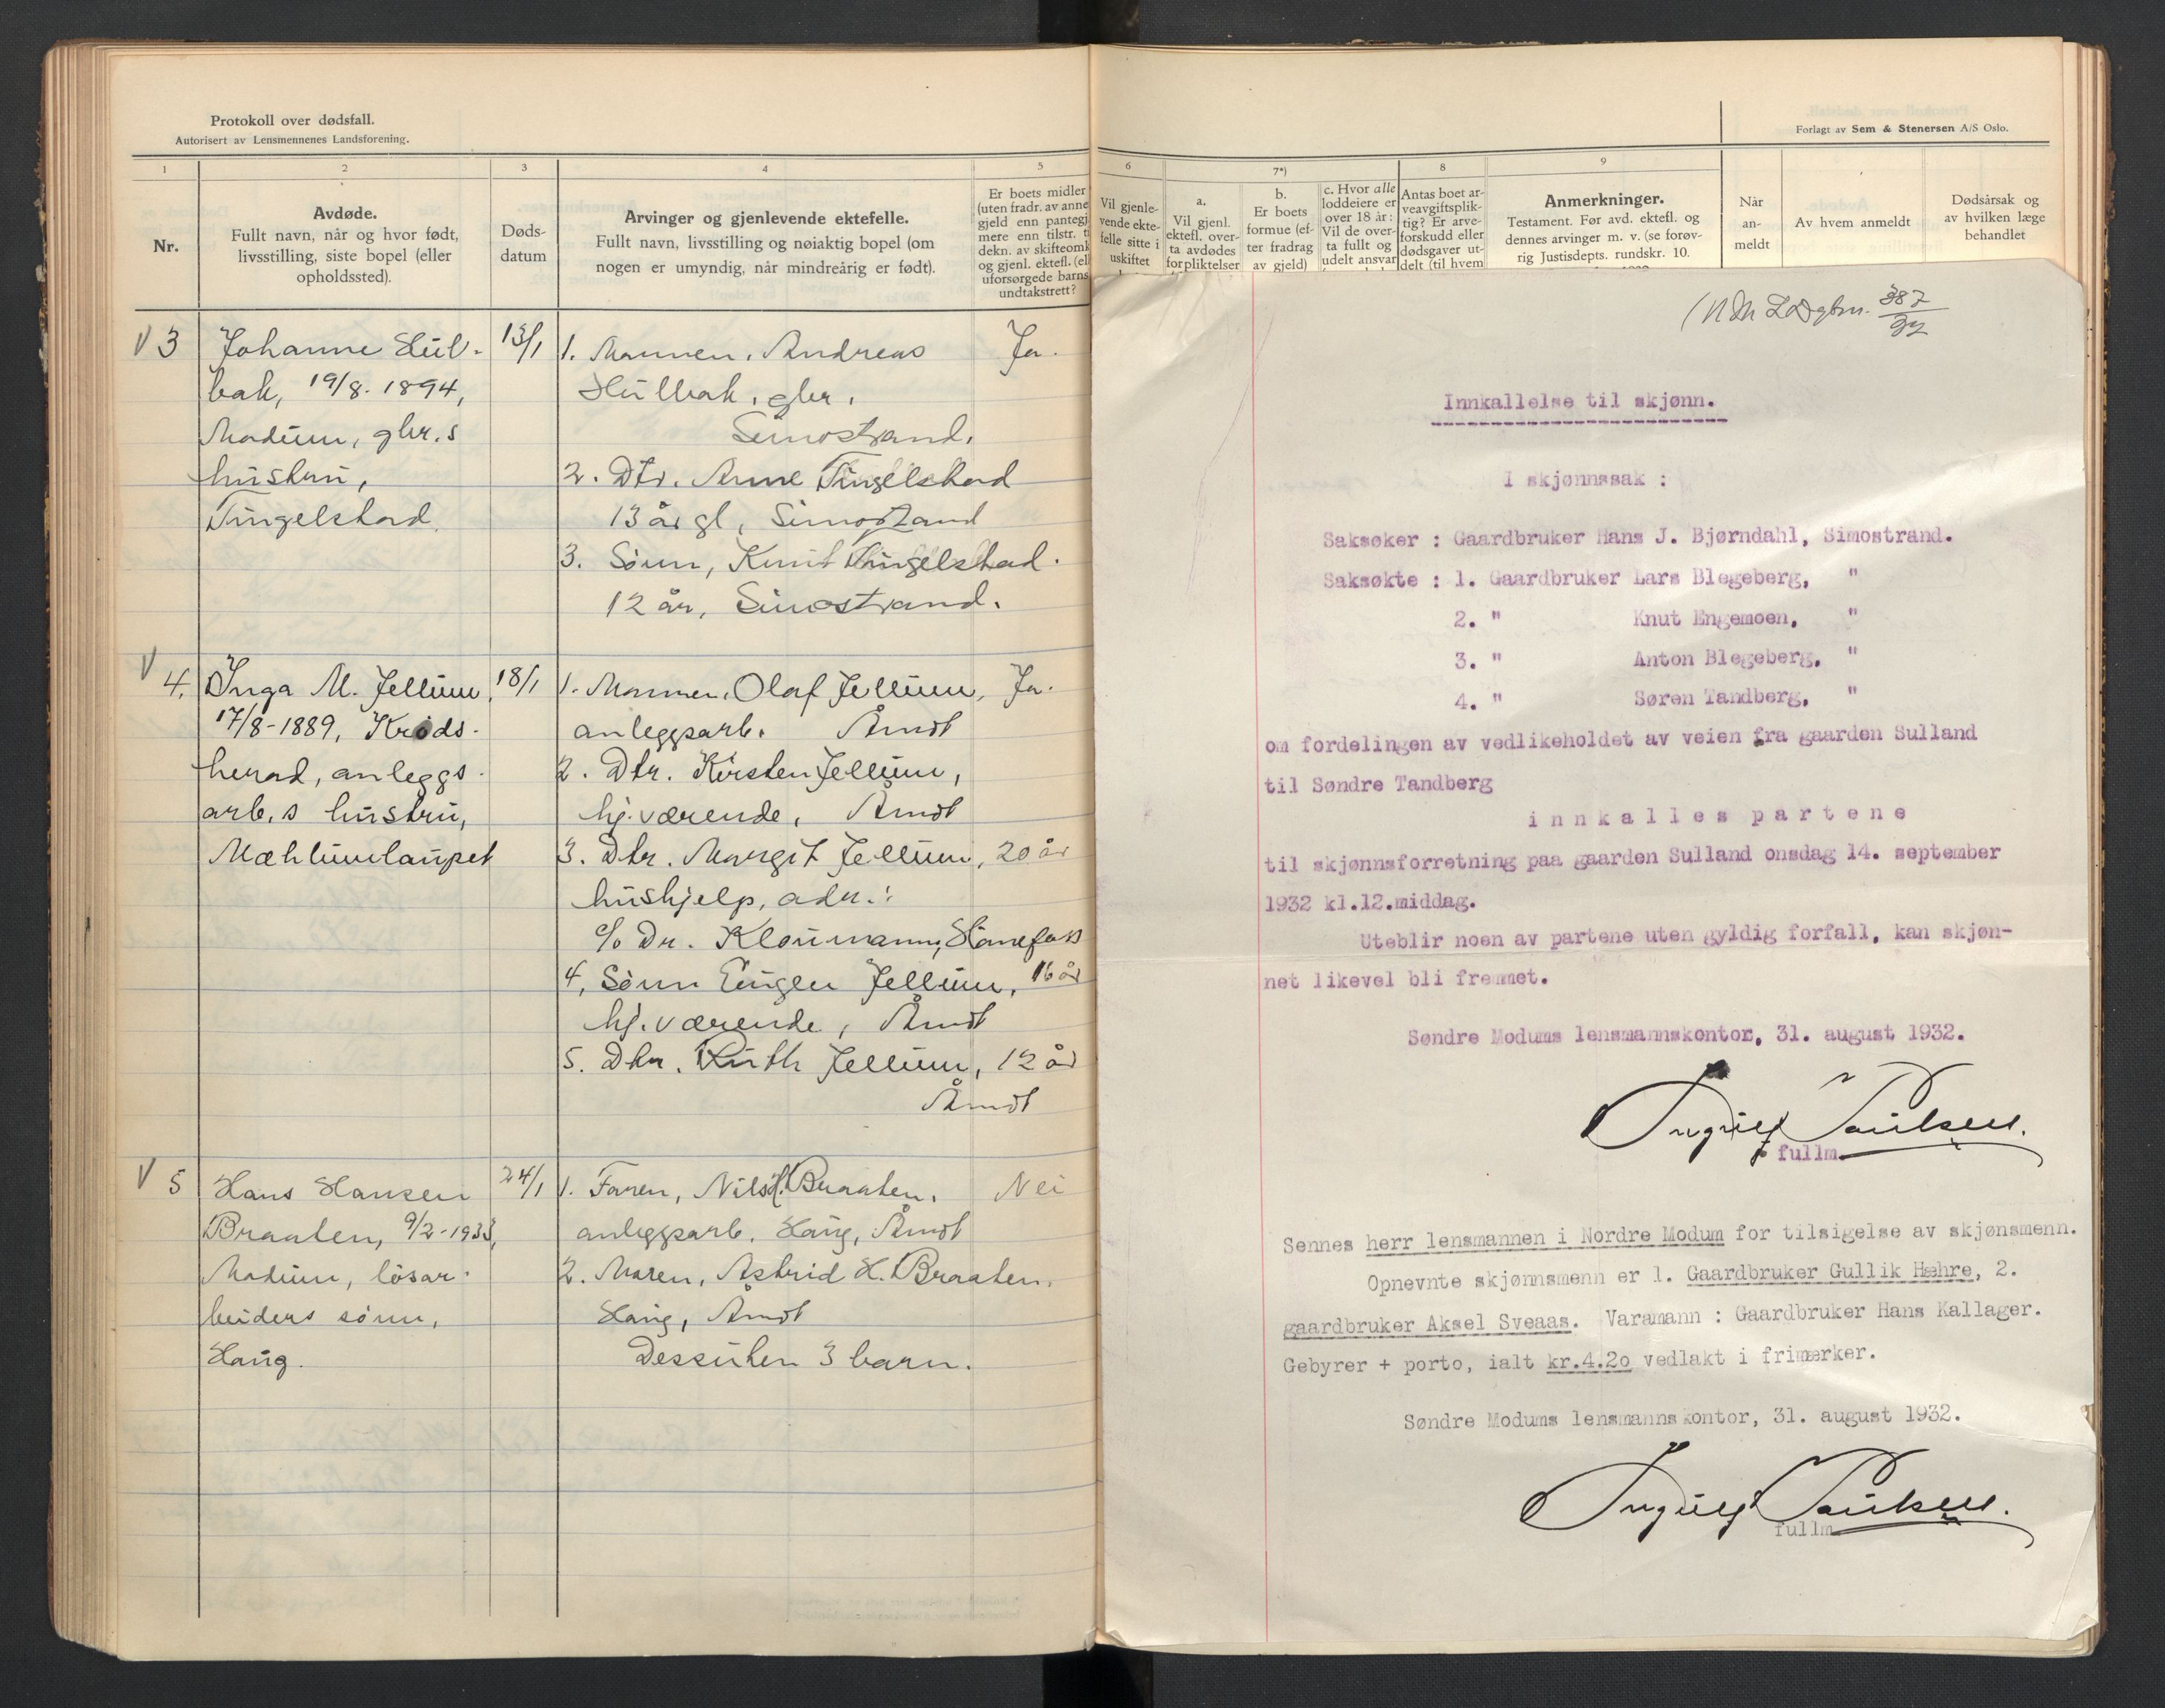 Protokoll over dødsfall.
Autorisert av Lensmennenes Landsforening.
1
2
3
4
5
Nr.
Avdøde.
Fullt navn, når og hvor født,
livsstilling, siste bopel (eller
opholdssted).
Døds-
datum
Arvinger og gjenlevende ektefelle.
Fullt navn, livsstilling og nøiaktig bopel (om
nogen er umyndig, når mindreårig er født).
Er boets midler
(uten fradr. av anne
gjeld enn pantegj
mere enn tilstr. t
dekn. av skifteomk
og gjenl. ektefl. (el
uforsørgede barns
undtakstrett?
V 3
Johanne Hul-
bak, 19/8. 1894,
Modum, gbr.s
hustru,
Tingelstad.
13/1
1. Mannen, Andreas
Hulbak, gbr,
Simostrand.
2. Dtr. Anne Tingelstad
13 år gl, Simostrand
3. Sønn, Knut Tingelstad.
12 år, Simostrand.
Ja.
V 4.
Inga M. Jellum,
17/8-1889, Krøds-
herad, anleggs-
arb.s hustru,
Mæhlumlaupet
18/1
1. Mannen, Olaf Jellum,
anleggsarb. Åmot
2. Dtr. Kirsten Jellum,
hj.værende, Åmot
3. Dtr. Margit Jellum, 20 år
hushjelp, adr.:
c/o Dr. Kloumann, Hønefoss
4, Sønn Eugen Jellum, 16 år
hj.værende, Åmot
5. Dtr. Ruth Jellum, 12 år
Åmot
Ja.
V 5
Hans Hansen
Braaten, 9/2-1933,
Modum, løsar-
beiders sønn,
Haug.
24/1
1. Faren, Nils H. Braaten,
anleggsarb. Haug, Åmot
2. Moren, Astrid H. Braaten,
Haug, Åmot
Dessuten 3 barn.
Nei
Forlagt av Sem & Stenersen A/S Oslo.
6
7*)
8
9
Vil gjenle-
vende ekte-
felle sitte i
uskiftet
a.
Vil gjenl.
ektefl. over-
ta avdødes
forpliktelser
b.
Er boets
formue (ef-
ter fradrag
av gjeld)
c. Hvor alle
loddeiere er
over 18 år:
Vil de over-
ta fullt og
udelt ansvar
Antas boet ar-
veavgiftsplik-
tig? Er arve-
forskudd eller
dødsgaver ut-
delt (til hvem
Anmerkninger.
Testament. Før avd. ektefl. og
dennes arvinger m. v. (se forøv-
rig Justisdepts. rundskr. 10.
Når
an-
meldt
Av hvem anmeldt
Dødsårsak og
av hvilken læge
behandlet
387
32
Innkallelse til skjønn.
I skjønnssak :
Saksøker : Gaardbruker Hans J. Bjørndahl, Simostrand.
Saksøkte : 1. Gaardbruker Lars Blegeberg, "
2. " Knut Engemoen, "
3. " Anton Blegeberg, "
4. " Søren Tandberg, "
om fordelingen av vedlikeholdet av veien fra gaarden Sulland
til Søndre Tandberg
innkalles partene
til skjønnsforretning paa gaarden Sulland onsdag 14. september
1932 kl.12.middag.
Uteblir noen av partene uten gyldig forfall, kan skjøn-
net likevel bli fremmet.
Søndre Modums lensmannskontor, 31. august 1932.
Ingulf Paulsen.
fullm.
Sennes herr lensmannen i Nordre Modum for tilsigelse av skjønsmenn.
Opnevnte skjønnsmenn er 1. Gaardbruker Gullik Hæhre, 2.
gaardbruker Aksel Sveaas. Varamann : Gaardbruker Hans Kallager.
Gebyrer + porto, ialt kr.4.2o vedlakt i frimærker.
Søndre Modums lensmannskontor, 31. august 1932.
Ingulf Paulsen.
fullm